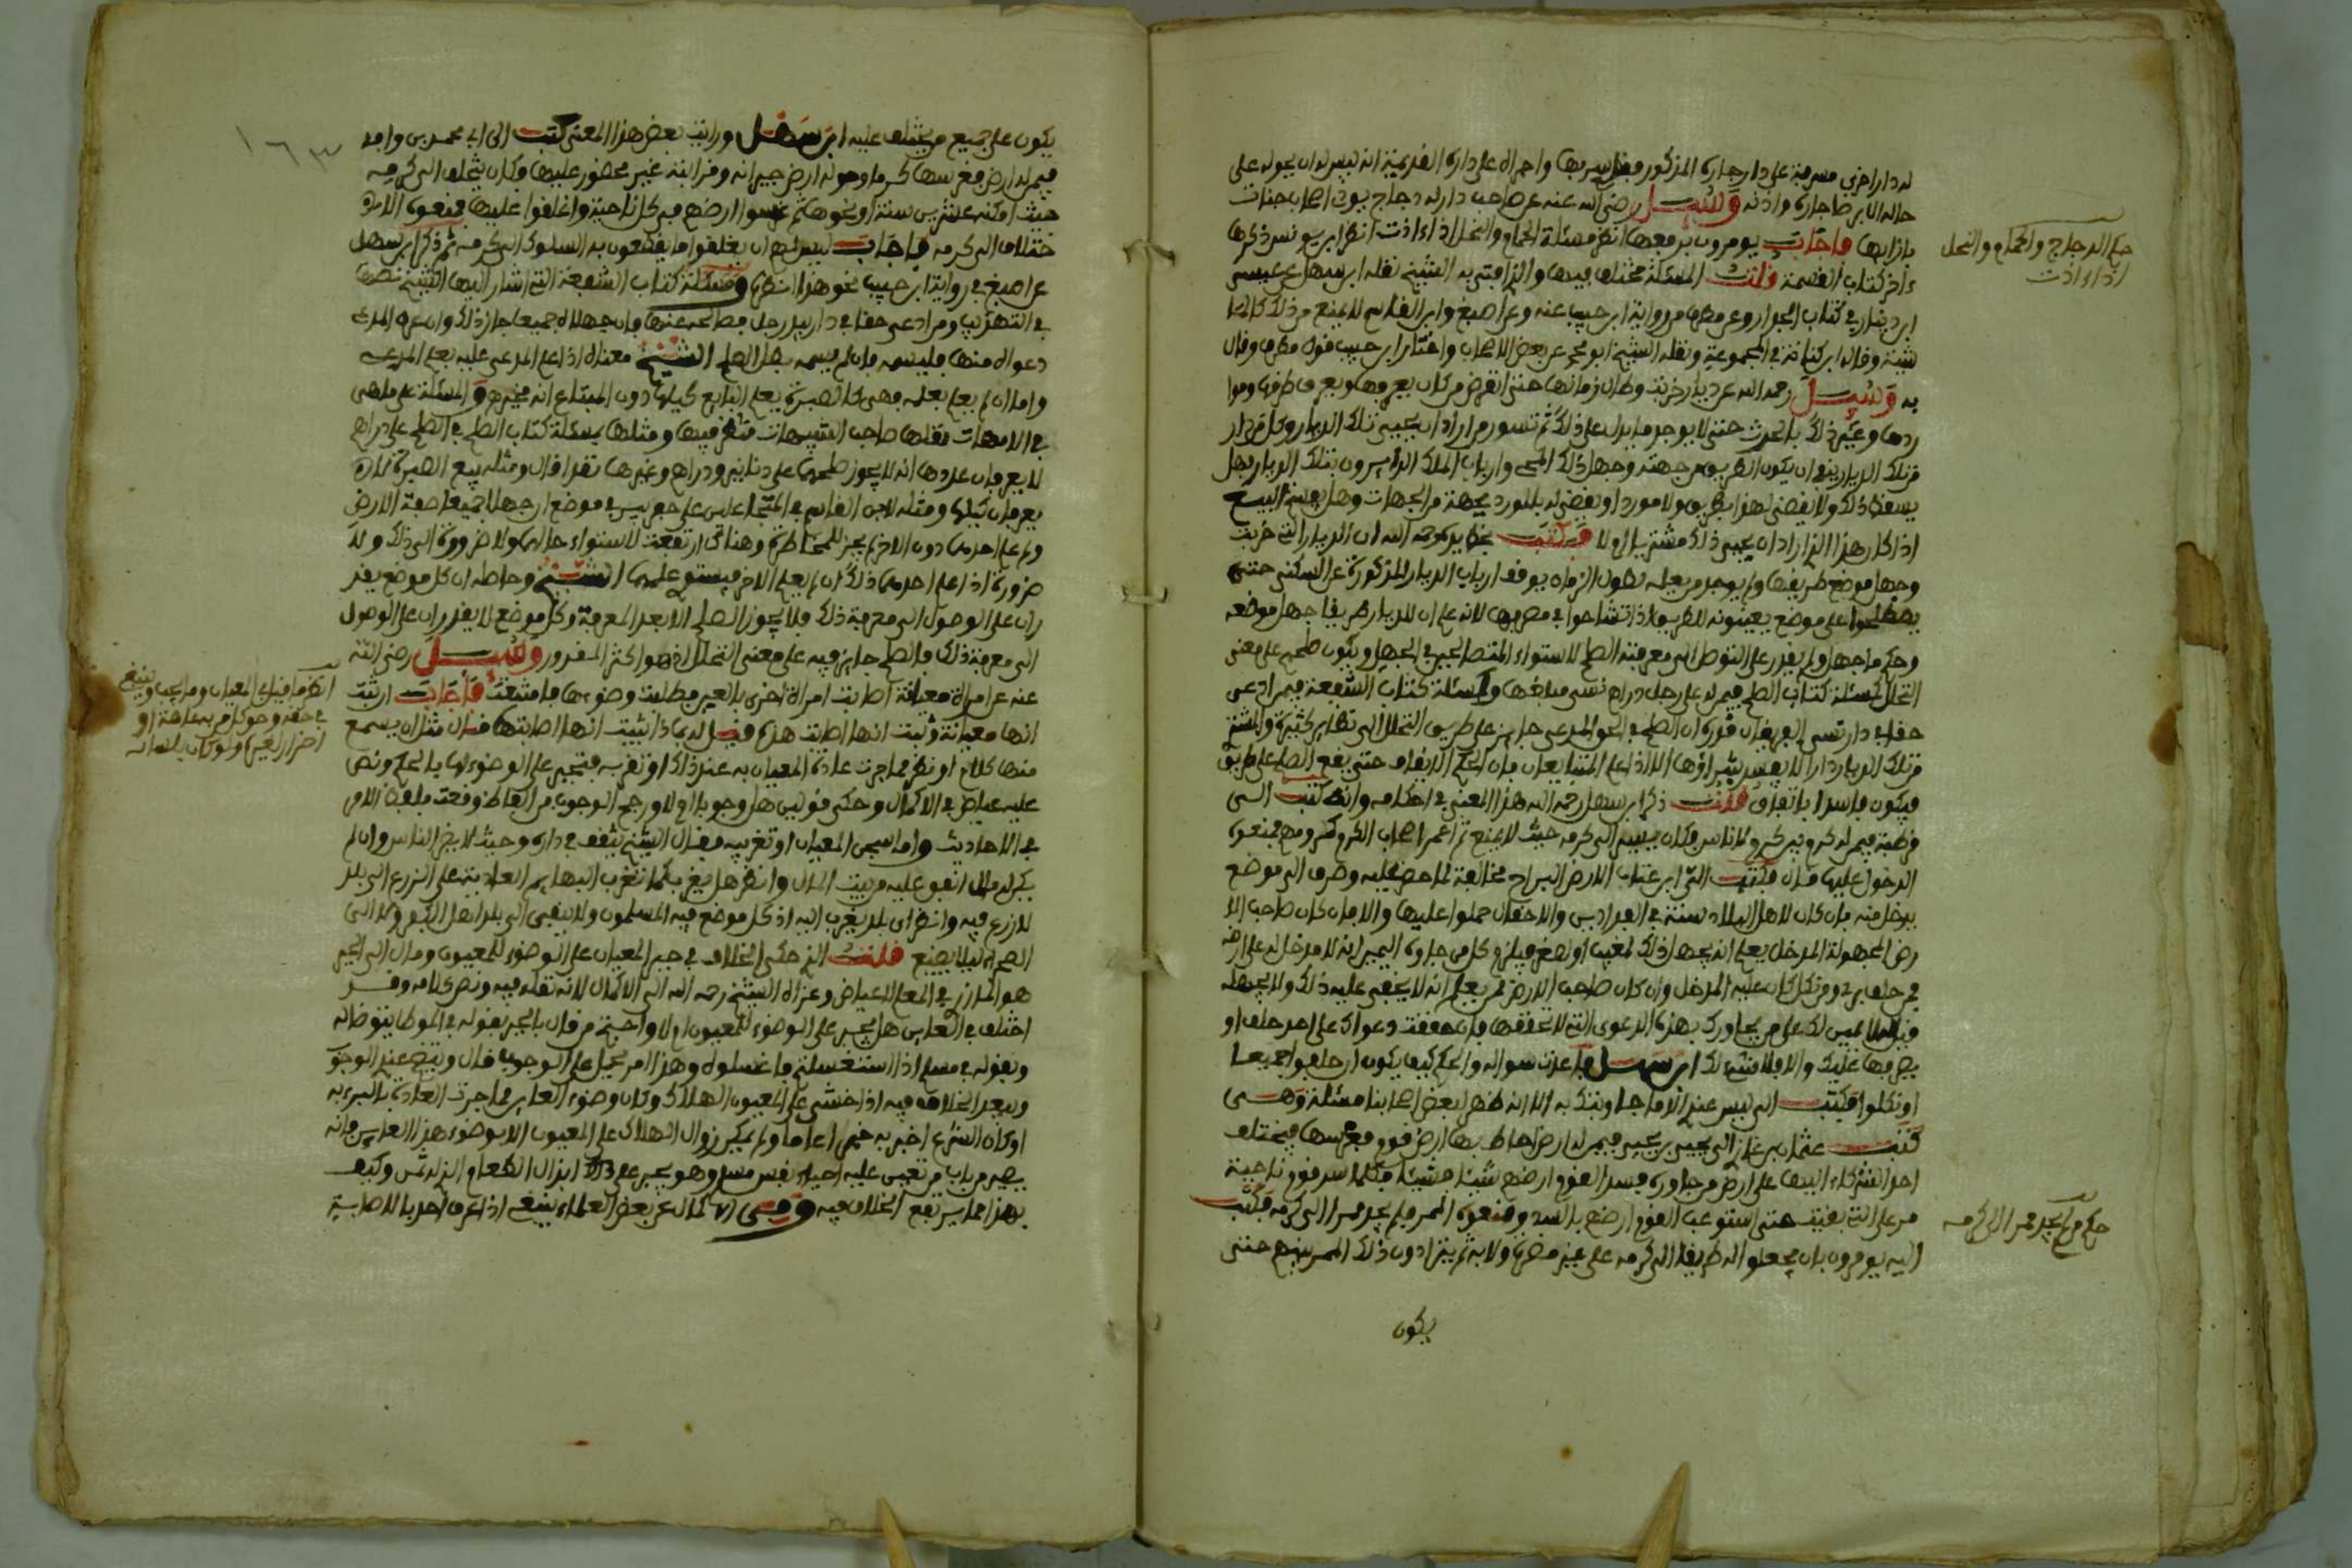 له دار اخرى مشرفة على دار جاره المذكور وفتل سربها واجراه على داره القديمة انه ليس له ان يحوله على
حاله الا برضا جاره واذنه وسئل رضي الله عنه عن صاحب دار له دجاج يوذي اصحاب جنات
بازايها فاجاب يومرون برفعها انظر مسئلة الحمام والنحل اذا اذت انظر ابن يونس ذكرها
ءاخر كتاب القسمة قلت المسئلة مختلف فيها والذي افتى به الشيخ نقله ابن سهل عن عيسى
ابن دينار في كتاب الجدار وعن مطرف من رواية ابن حبيب عنه وعن اصبغ وابن القاسم لا يمنع من ذلك كالما
شية وقاله ابن كنانة في المجموعة ونقله الشيخ ابو محمد عن بعض الاصحاب واختار ابن حبيب قول مطرف وقال
به وسئل رحمه الله عن ديار خربت وطال زمانها حتى انقرض من كان يعرفها ويعرف طرقها وموا
ردها وغير ذلك بالحرث حتى لا يوجد ما يدل على ذلك ثم تسور من اراد ان يحيي تلك الديار وكل من دار
من تلك الديار ينوان يكون الطريق من جهته وجهل ذلك المحيي وارباب الملاك الدايرون بتلك الديار فهل
يسقط ذلك ولا يقضى لهذا بطريق ولا مورد او يقضى له بالمورد بجهة من الجهات وهل يفسخ البيع
اذا كان هذا الذي اراد ان يحيي ذلك مشتريا او لا فكتب بخط يده رحمه الله ان الديار التي خربت
وجهل موضع طريقها ولم يوجد من يعلمه لطول الزمان يوقف ارباب الديار المذكورة عن السكنى حتى
يصطلحوا على موضع يعينونه للطريق اذا تشاحوا في مصرفها لانه علم ان للديار طريقا جهل موضعه
وحكم ما جهل ولم يقدر على التوصل الى معرفته الصلح لاستواء المتصالحين في الجهل ويكون صلحهم على معنى
التحلل كمسئلة كتاب الصلح فيمن له على رجل دراهم نسي مبلغها وكمسئلة كتاب الشفعة فيمن ادعى
حقا في دار تنسى الفريقان قدره ان الصلح في الحق المدعى جايز على طريق التحلل الى نظاير كثيرة والمشتر
من تلك الديار دارا لا يفسد شراؤها الا اذا علم المتبايعان بان الحكم الايقاف حتى يقع الصلح على طريق
فيكون فاسدا باتفاق قلت ذكر ابن سهل رحمه الله هذا المعنى في احكامه وانه كتب الى
قرطبة فيمن له كرم بين كروم لناس فكان يسير الى كرمه حيث لا يمنع ثم اغمر اصحاب الكروم كرومهم فمنعوه
الدخول عليها قال فكتب الى ابن عتاب الارض البراح مخالفة لما حضر عليه وصرف الى موضع
يدخل منه فان كان لاهل البلاد سنة في الفراديس والاحقال حملوا عليها والا فان كان صاحب الا
رض المجهولة المدخل يعلم انه يجهل ذلك لمغيب او لصغر فيلزم كل من جاوره اليمين انه لا مدخل له على ارضه
فمن حلف بري ومن نكل كان عليه المدخل وان كان صاحب الارض ممن يعلم انه لا يخفى عليه ذلك ولا يجهله
فيقال له لا يمين لك على من يجاورك بهذه الدعوى التي لا تحققها فان حققت دعواك على احد حلف او
يصرفها عليك والا فلا شيء لك ابن سهل فاعدت سواله والحكم كيف يكون ان حلفوا جميعا
او نكلوا فكتب الي ليس عند الامام جل ونتك به الا انه ظهر لبعض اصحابنا مسئلة وهي
كتب عثمان بن غاز الى يحيى بن يحيى فيمن له ارض احاط بها ارض قوم فغرسها فيختلف
احد الشركاء اليها على ارض من جاوره فيسد القوم ارضهم شيئا فشيئا فكلما سد قوم ناحية
مر على التي بقيت حتى استوعب القوم ارضهم بالسد ومنعوه الممر فلم يجد ممرا الى كرمه فكتب
اليه يومرون بان يجعلوا له طريقا الى كرمه على غير مضرة ولا به ثم يترادون ذلك الممر بينهم حتى
يكون
حكم الدجاج والحمام والنحل
اذا اذت
حكم من لم يجد ممرا الى كرمه
١٦٣
يكون على جميع من يختلف عليه ابن سهل ورايت بعض هذا المعنى كتب الى ابي محمد بن وافد
فيمن له ارض فغرسها كرما وحوله ارض جيرانه وفرابته غير محضور عليها وكان يختلف الى كرمه
حيث امكنه عشرين سنة او نحوها ثم غرسوا ارضهم من كل ناحية واغلقوا عليها فمنعوه الا
ختلاف الى كرمه فاجاب ليس لهم ان يغلقوا ما يقطعون به السلوك الى كرمه ثم ذكر ابن سهل
عن اصبغ في رواية ابن حبيب نحو هذا انظره ومسئلة كتاب الشفعة التي اشار اليها الشيخ نصها
في التهذيب ومن ادعى حقا في دار بيد رجل فصالحه عنها فان جهلاه جميعا جاز ذلك وان عرف المدعي
دعواه منها فليسمه فان لم يسمه بطل الصلح الشيخ معناه اذا علم المدعى عليه بعلم المدعي
واما ان لم يعلم بعلمه فهي كالصبرة يعلم البايع كيلها دون المبتاع انه مخير والمسئلة على ما هي
في الامهات نقلها صاحب التنبيهات فتنظر فيها ومثلها بمسئلة كتاب الصلح في الصلح على دراهم
لا يعرفان عددها انه لا يجوز صلحها على دنانير ودراهم وغيرها نقدا قال ومثله بيع الصبرة لا
يعرفان كيلها ومثله لابن القاسم في المتجاعلين على حفر بير في موضع ان جهلا جميعا صفة الارض
ولم علم احدهما دون الاخر لم يجز للمخاطرة وهنا في ارتفعت لاستواء حاليهما ولا ضرورة الى ذلك ولا
ضرورة اذا علم احدهما ذلك ان لم يعلم الاخر فيستوي علمهما الشيخ وحاصله ان كل موضع يقد
ران على الوصول الى معرفة ذلك فلا يجوز الصلح الا بعد المعرفة وكل موضع لا يقدران على الوصول
الى معرفة ذلك فالصلح جايز فيه على معنى التحلل اذ هو اكثر المقدور وسئل رضي الله
عنه عن امراة معيانة اصابت امراة اخرى بالعين فطلبت وضوءها فامتنعت فاجاب ان ثبت
انها معيانة وثبت انها اصابت هذه قيل له بماذا يثبت انها اصابتها قال مثل ان يسمع
منها كلام او نظر مما جرت عادة المعيان به عند ذلك او تقر به فتجبر على الوضوء لها بالحكم ونص
عليه عياض في الاكمال وحكى قولين هل وجوبا او لا ورجح الوجوب من الفاظ وقعت بلفظ الامر
في الاحاديث واما سجن المعيان او تغريبه فقال الشيخ يثقف في داره وحيث لا يضر الناس وان لم
يكن له مال انفق عليه من بيت المال وانظر هل يغرب كما تغرب البهايم العادية على الزرع الى بلد
لا زرع فيه وانظر اي بلد يغرب اليه اذ كل موضع فيه المسلمون ولا ينفى الى بلد اهل الكفر ولا الى
الصحراء ليلا يضيع قلت الذي حكى الخلاف في جبر المعيان على الوضوء للمعيون ومال الى الجبر
هو المازري في المعلم لا عياض وعزاه الشيخ رحمه الله الى الاكمال لانه نقله فيه ونص كلامه وقد
اختلف في العاين هل يجبر على الوضوء للمعيون او لا واحتج من قال بالجبر بقوله في الموطا يتوضا له
وبقوله في مسلم اذا استغسلتم فاغسلوه وهذا امر يحمل على الوجوب قال ويتضح عندي الوجو
ويبعد الخلاف فيه اذا خشي على المعيون الهلاك وكان وضوء العاين مما جرت العادة بالبرء به
او كان الشرع اخبر به خبرا عاما ولم يمكن زوال الهلاك على المعيون الا بوضوء هذا العاين فانه
يصير من باب من تعين عليه احياء نفس مسلم وهو يجبر على ذلك ابذال الطعام الذي له ثمن وكيف
بهذا مما يرتفع الخلاف فيه وفي الاكمال عن بعض العلماء ينبغي اذا عرف احد بالاصابة
انظر ما قيل في المعيان وما يجب وينبغي
في حقه وهو كل من به عاهة او
اضرار لغيره ولو كان بلسانه